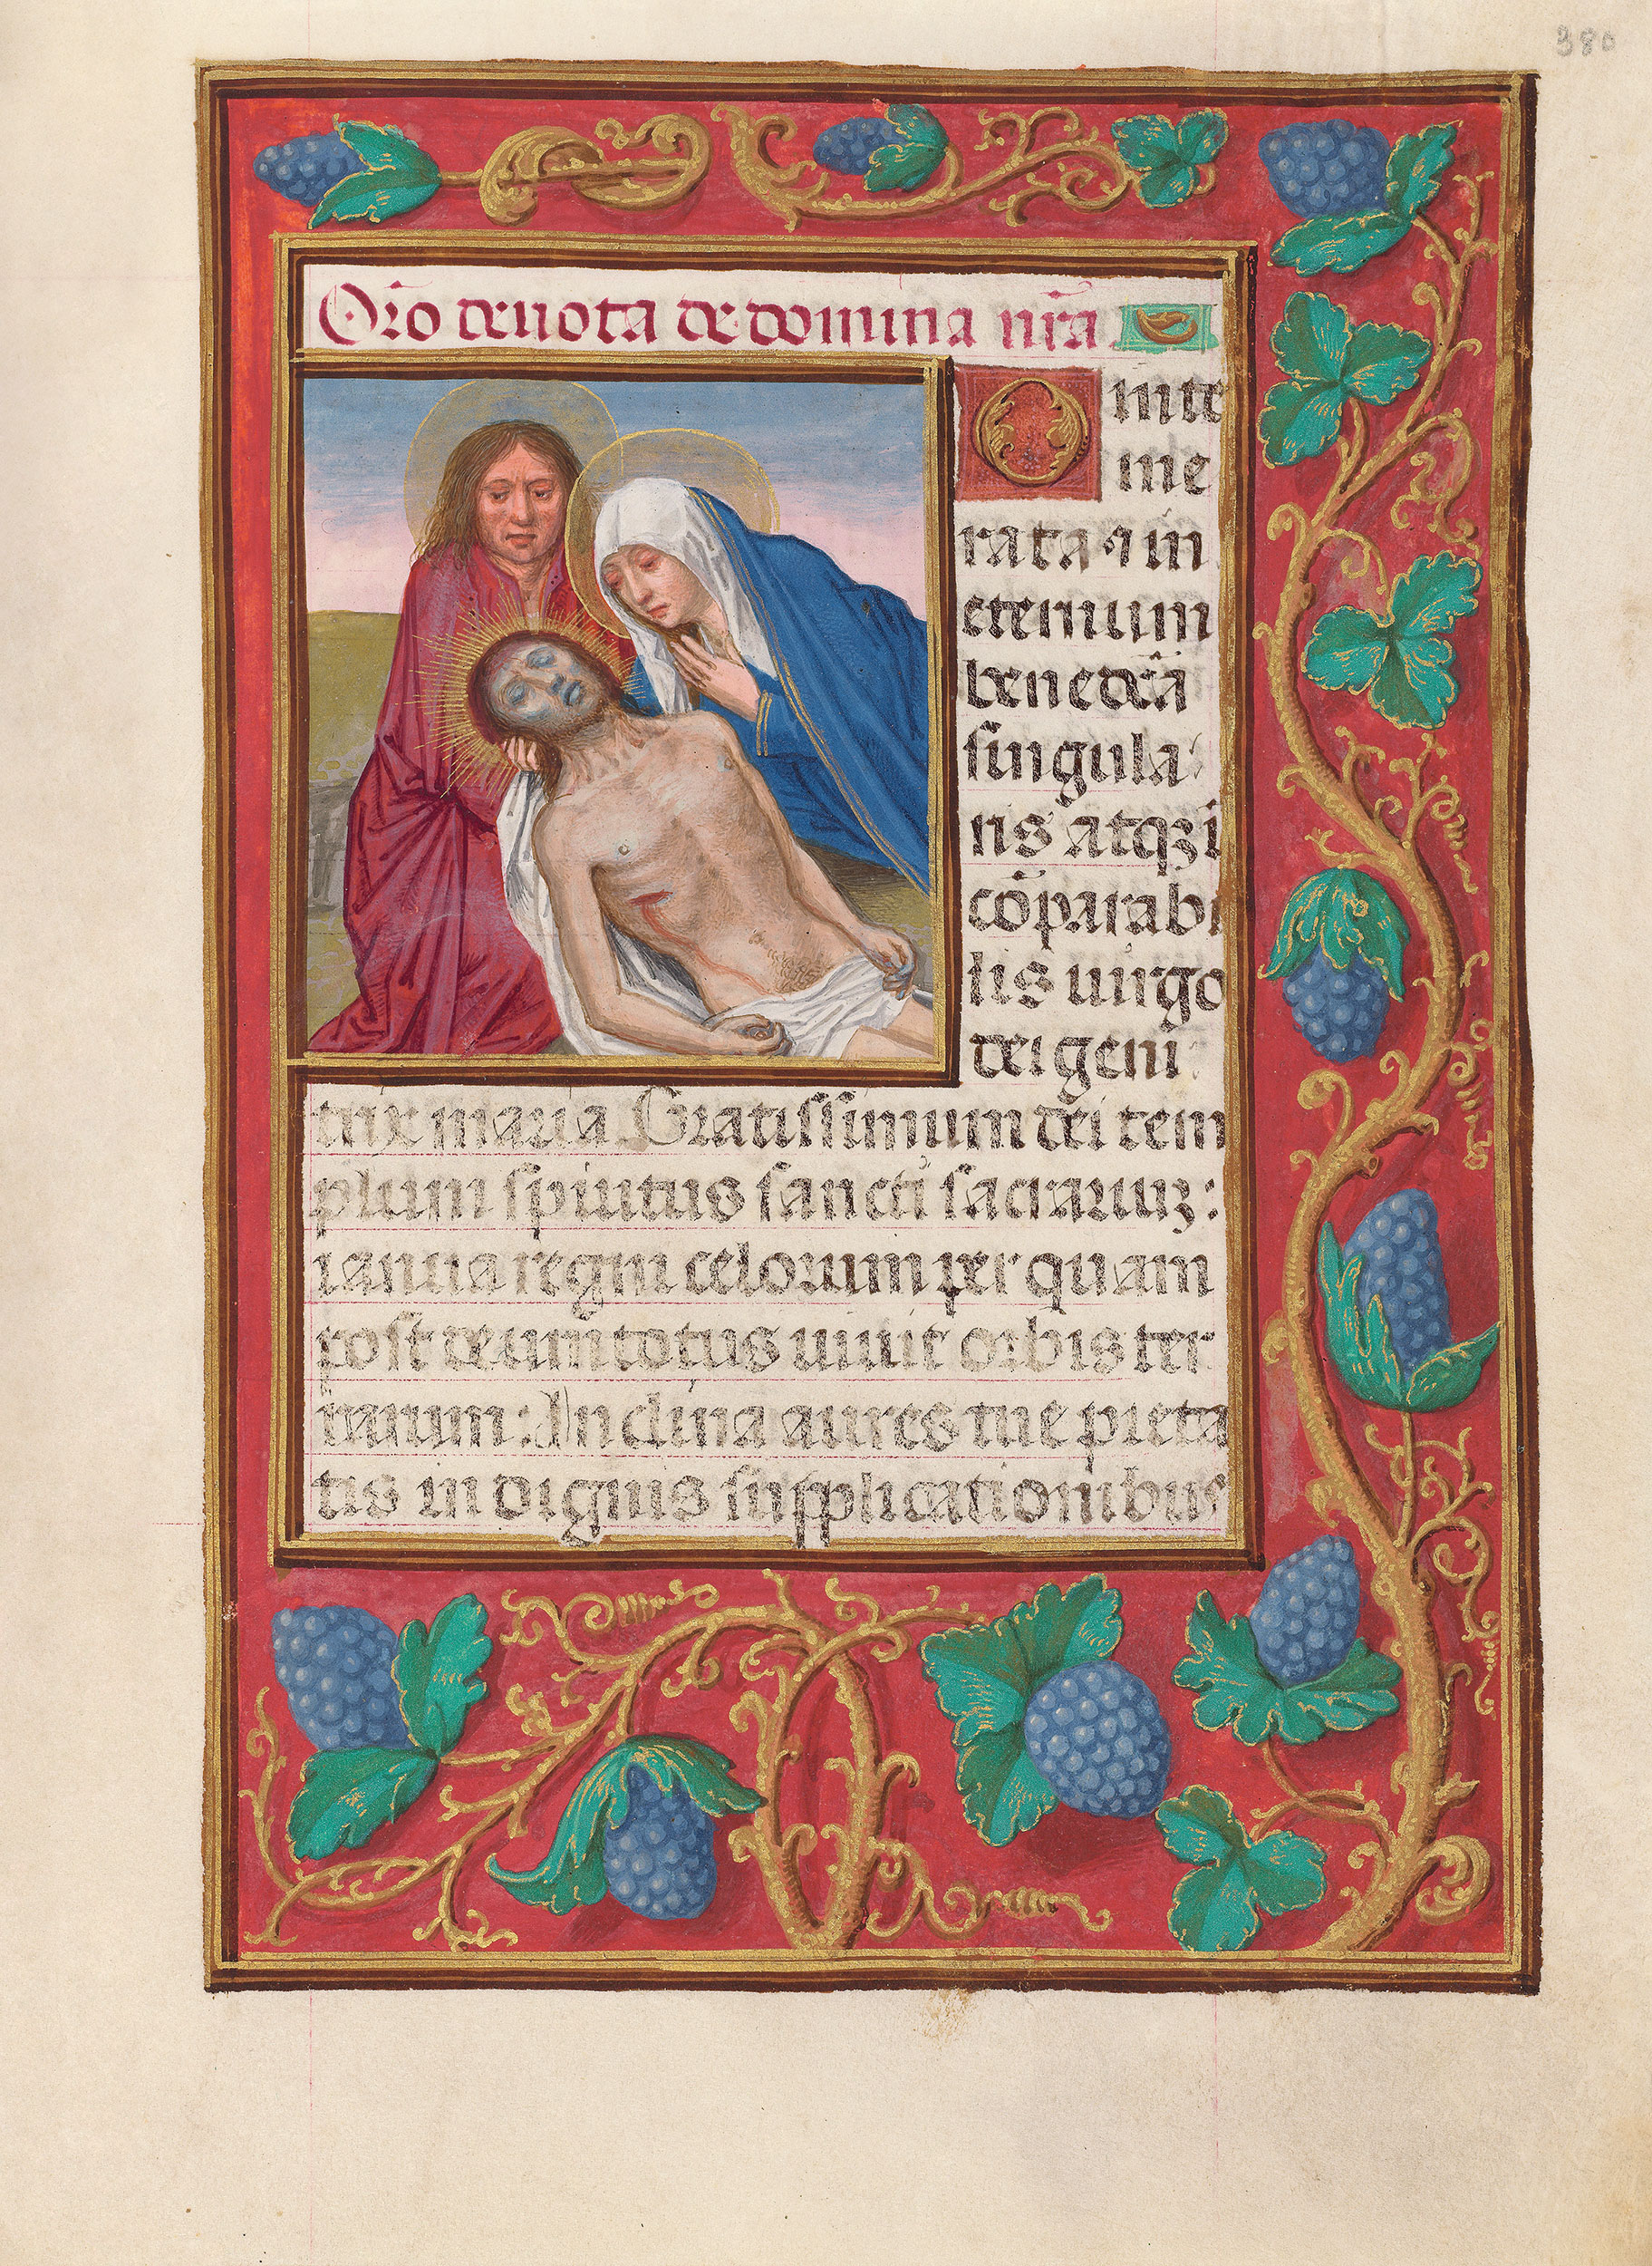 380
Or̃o deuota de domina nr̃a
O inte
me
rata ⁊ in
eternum
benedc̃a
singula
ris atqꝫ i
cõparabi
lis uirgo
dei geni
trix maria Gratissimum dei tem
plum spiritus sancti sacrariuꝫ:
ianua regni celorum per quam
post deum totus uiuit orbis ter
rarum: Inclina aures tue pieta
tis in dignis supplicationibus